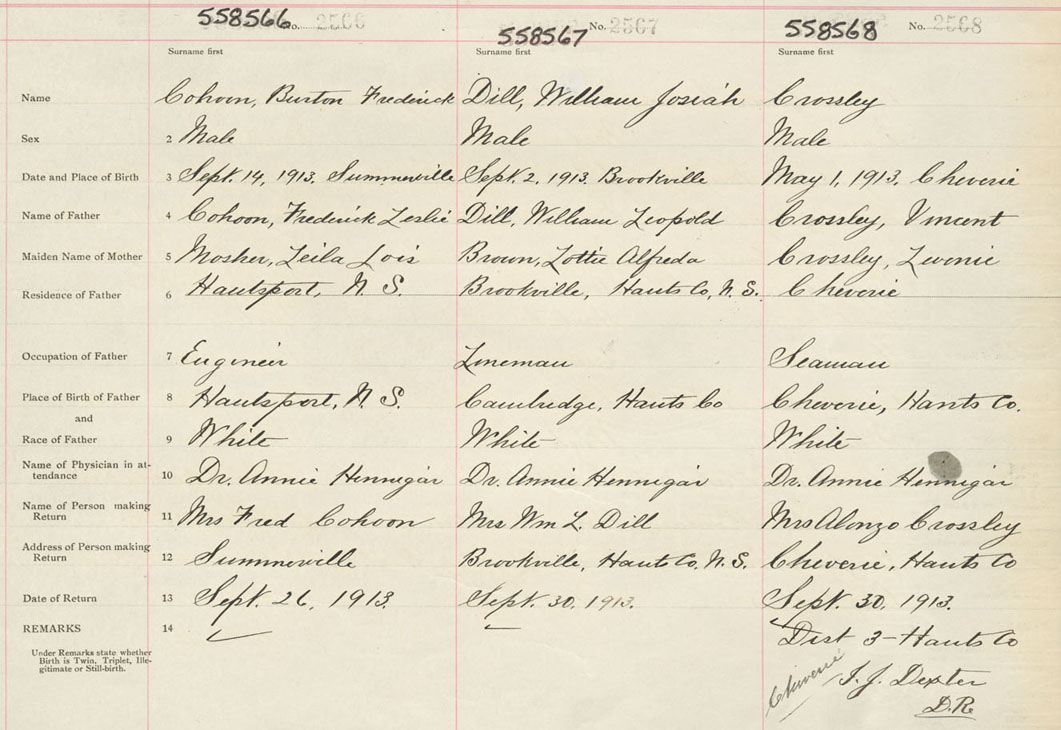 558566 No. 2566 558567 No. 2567 558568 No. 2568
Surname first Surname first Surname first
Name Cohoon, Burton Frederick Dill, William Josiah Crossley
Sex 2 Male Male Male
Date and Place of Birth 3 Sept. 14, 1913. Summerville Sept. 2, 1913. Brookville May 1, 1913. Cheverie
Name of Father 4 Cohoon, Frederick Leslie Dill, William Leopold Crossley, Vincent
Maiden Name of Mother 5 Mosher, Leila Lois Brown, Lottie Alfreda Crossley, Levonie
Residence of Father 6 Hantsport, N. S. Brookville, Hants Co, N. S. Cheverie
Occupation of Father 7 Engineer Lineman Seaman
Place of Birth of Father 8 Hantsport, N. S. Cambridge, Hants Co Cheverie, Hants Co.
and
Race of Father 9 White White White
Name of Physician in at-
tendance 10 Dr. Annie Hennigar Dr. Annie Hennigar Dr. Annie Hennigar
Name of Person making
Return 11 Mrs Fred Cohoon Mrs Wm L. Dill Mrs Alonzo Crossley
Address of Person making
Return 12 Summerville Brookville, Hants Co, N. S. Cheverie, Hants Co
Date of Return 13 Sept. 26, 1913. Sept. 30, 1913. Sept. 30, 1913.
REMARKS 14 Dist 3 - Hants Co
Under Remarks state whether
Birth is Twin, Triplet, Ille-
gitimate or Still-birth.
Cheverie
I. J. Dexter
D.R.